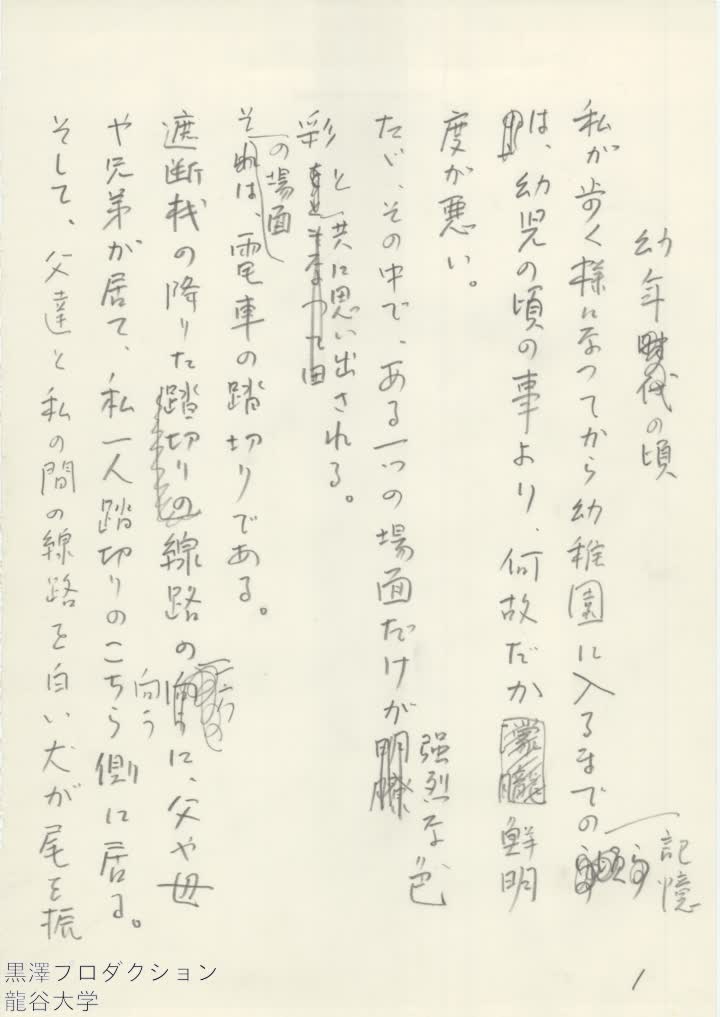 幼年時代の頃
私が歩く様になつてから幼稚園に入るまでの記憶
は、幼児の頃の事より、何故だか朦朧鮮明
度が悪い。
たゞ、その中で、ある一つの場面だけが明瞭強烈な色
彩と共に思い出される。
その場面それは、電車の踏切りである。
遮断機の降りた踏切りの線路の向う向うに、父や母
や兄弟が居て、私一人踏切りのこちら側に居る。
そして、父達と私の間の線路を白い犬が尾を振
1
黒澤プロダクション
龍谷大学